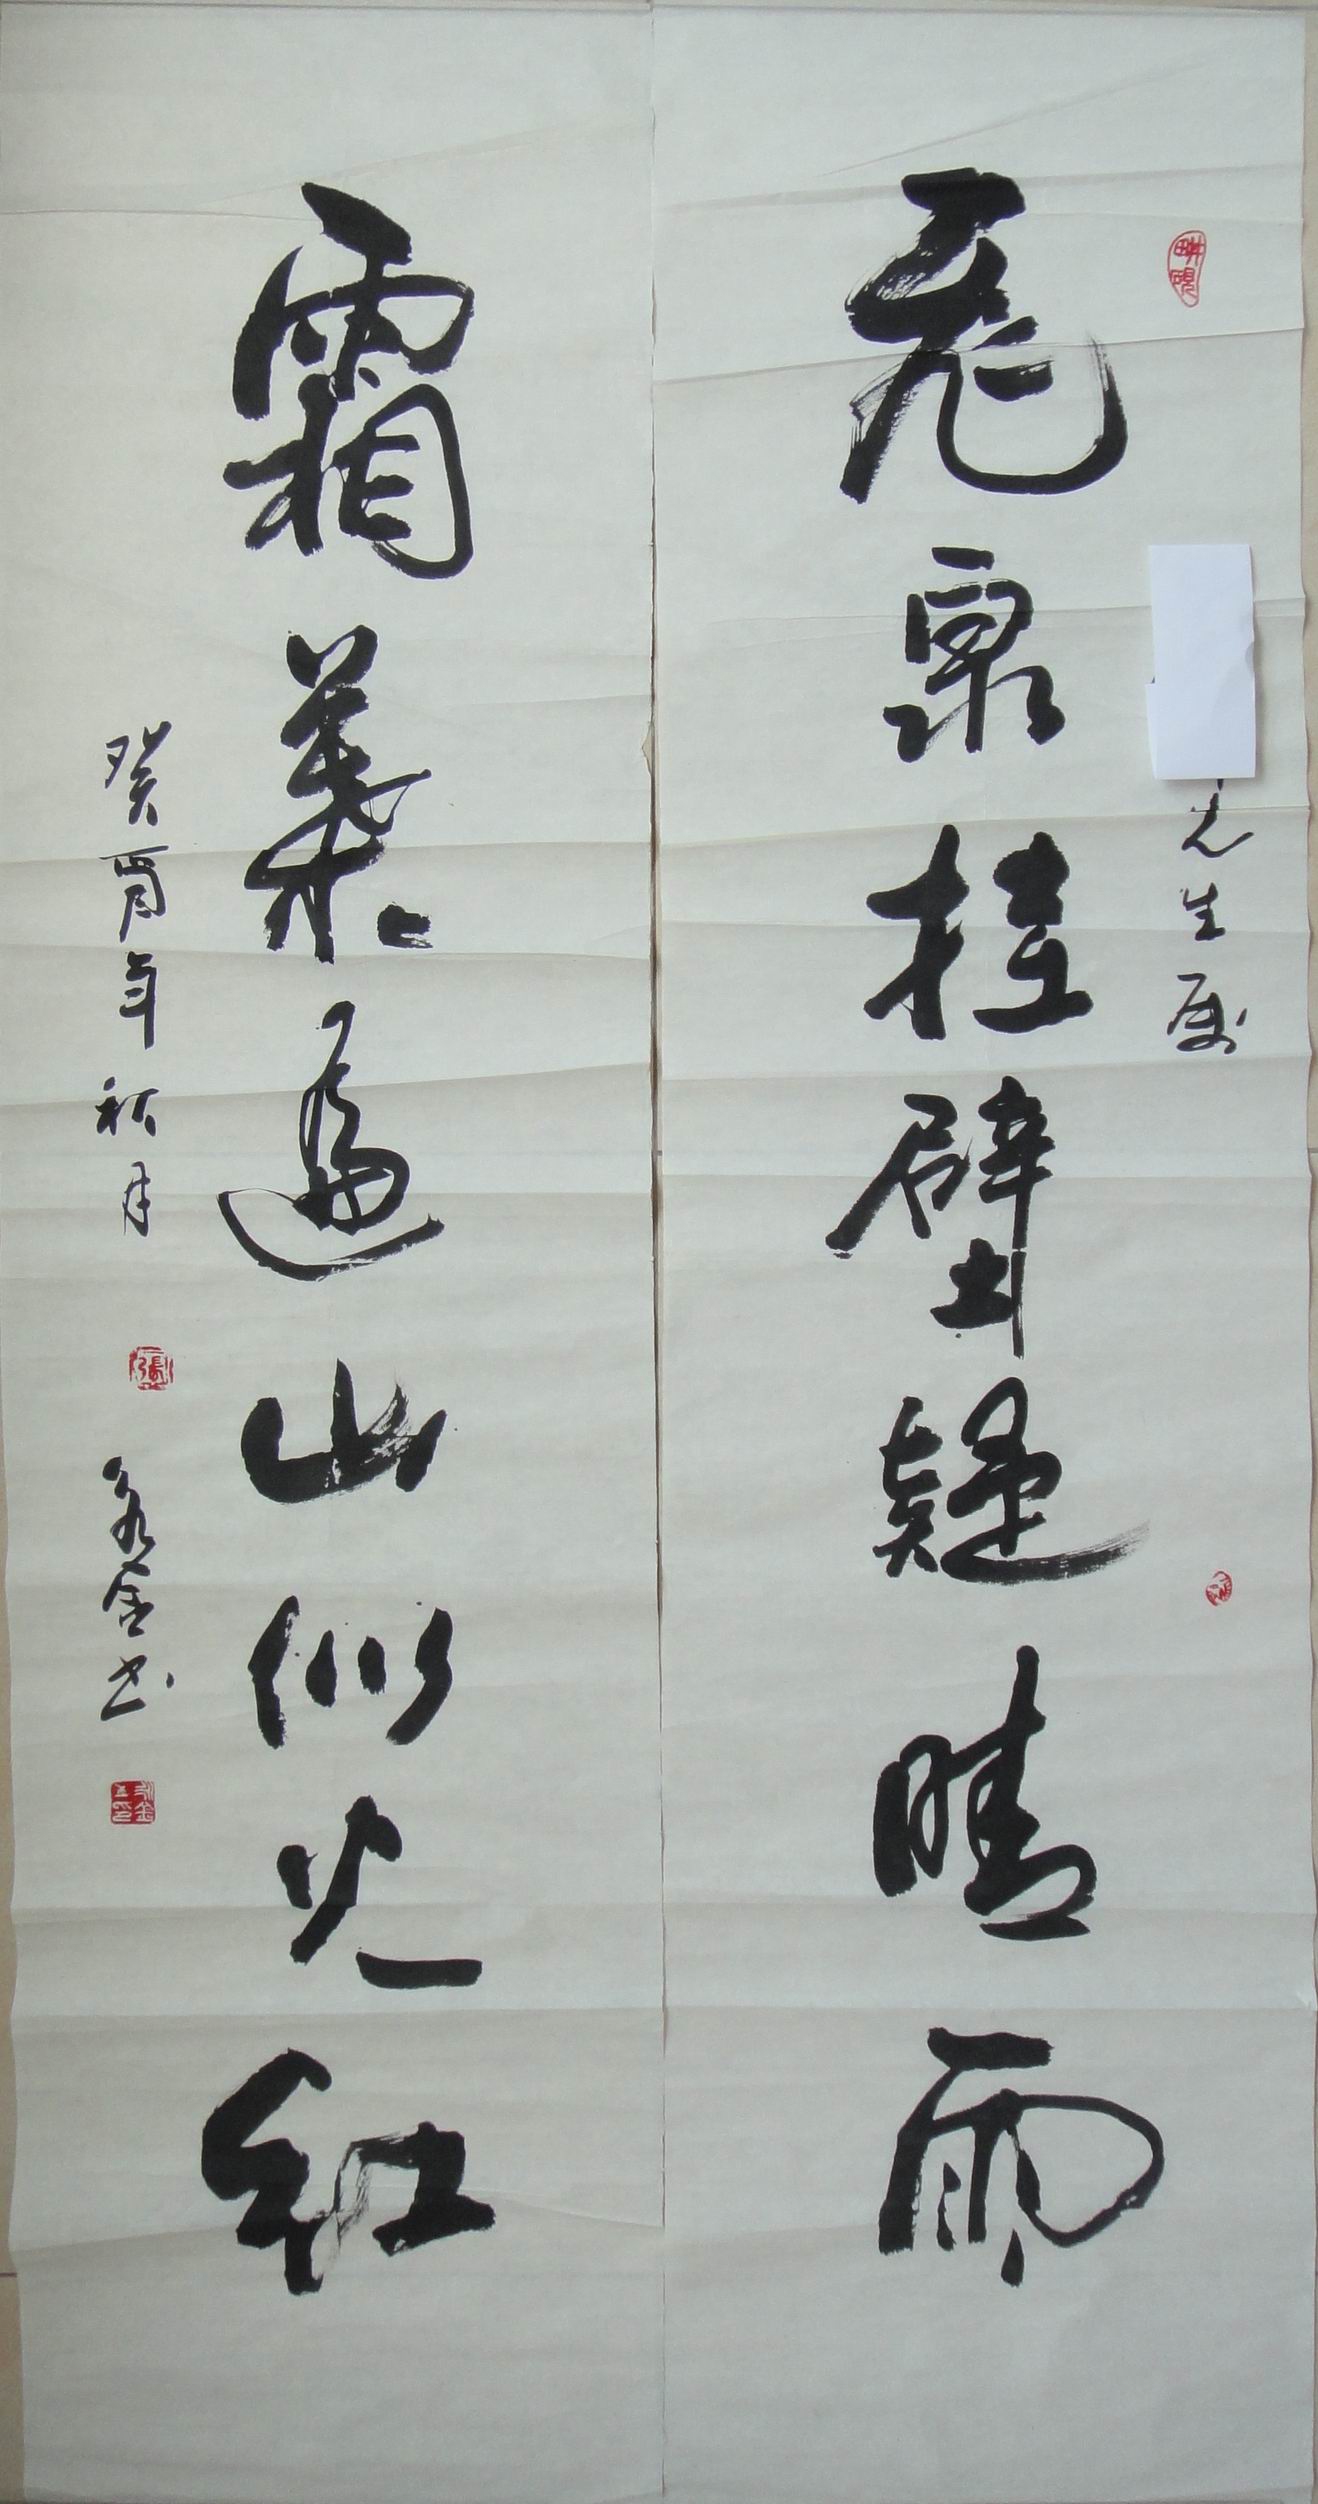 飛泉挂壁疑晴雨
先生属
霜葉遍山似火紅
癸酉年秋月
永金书